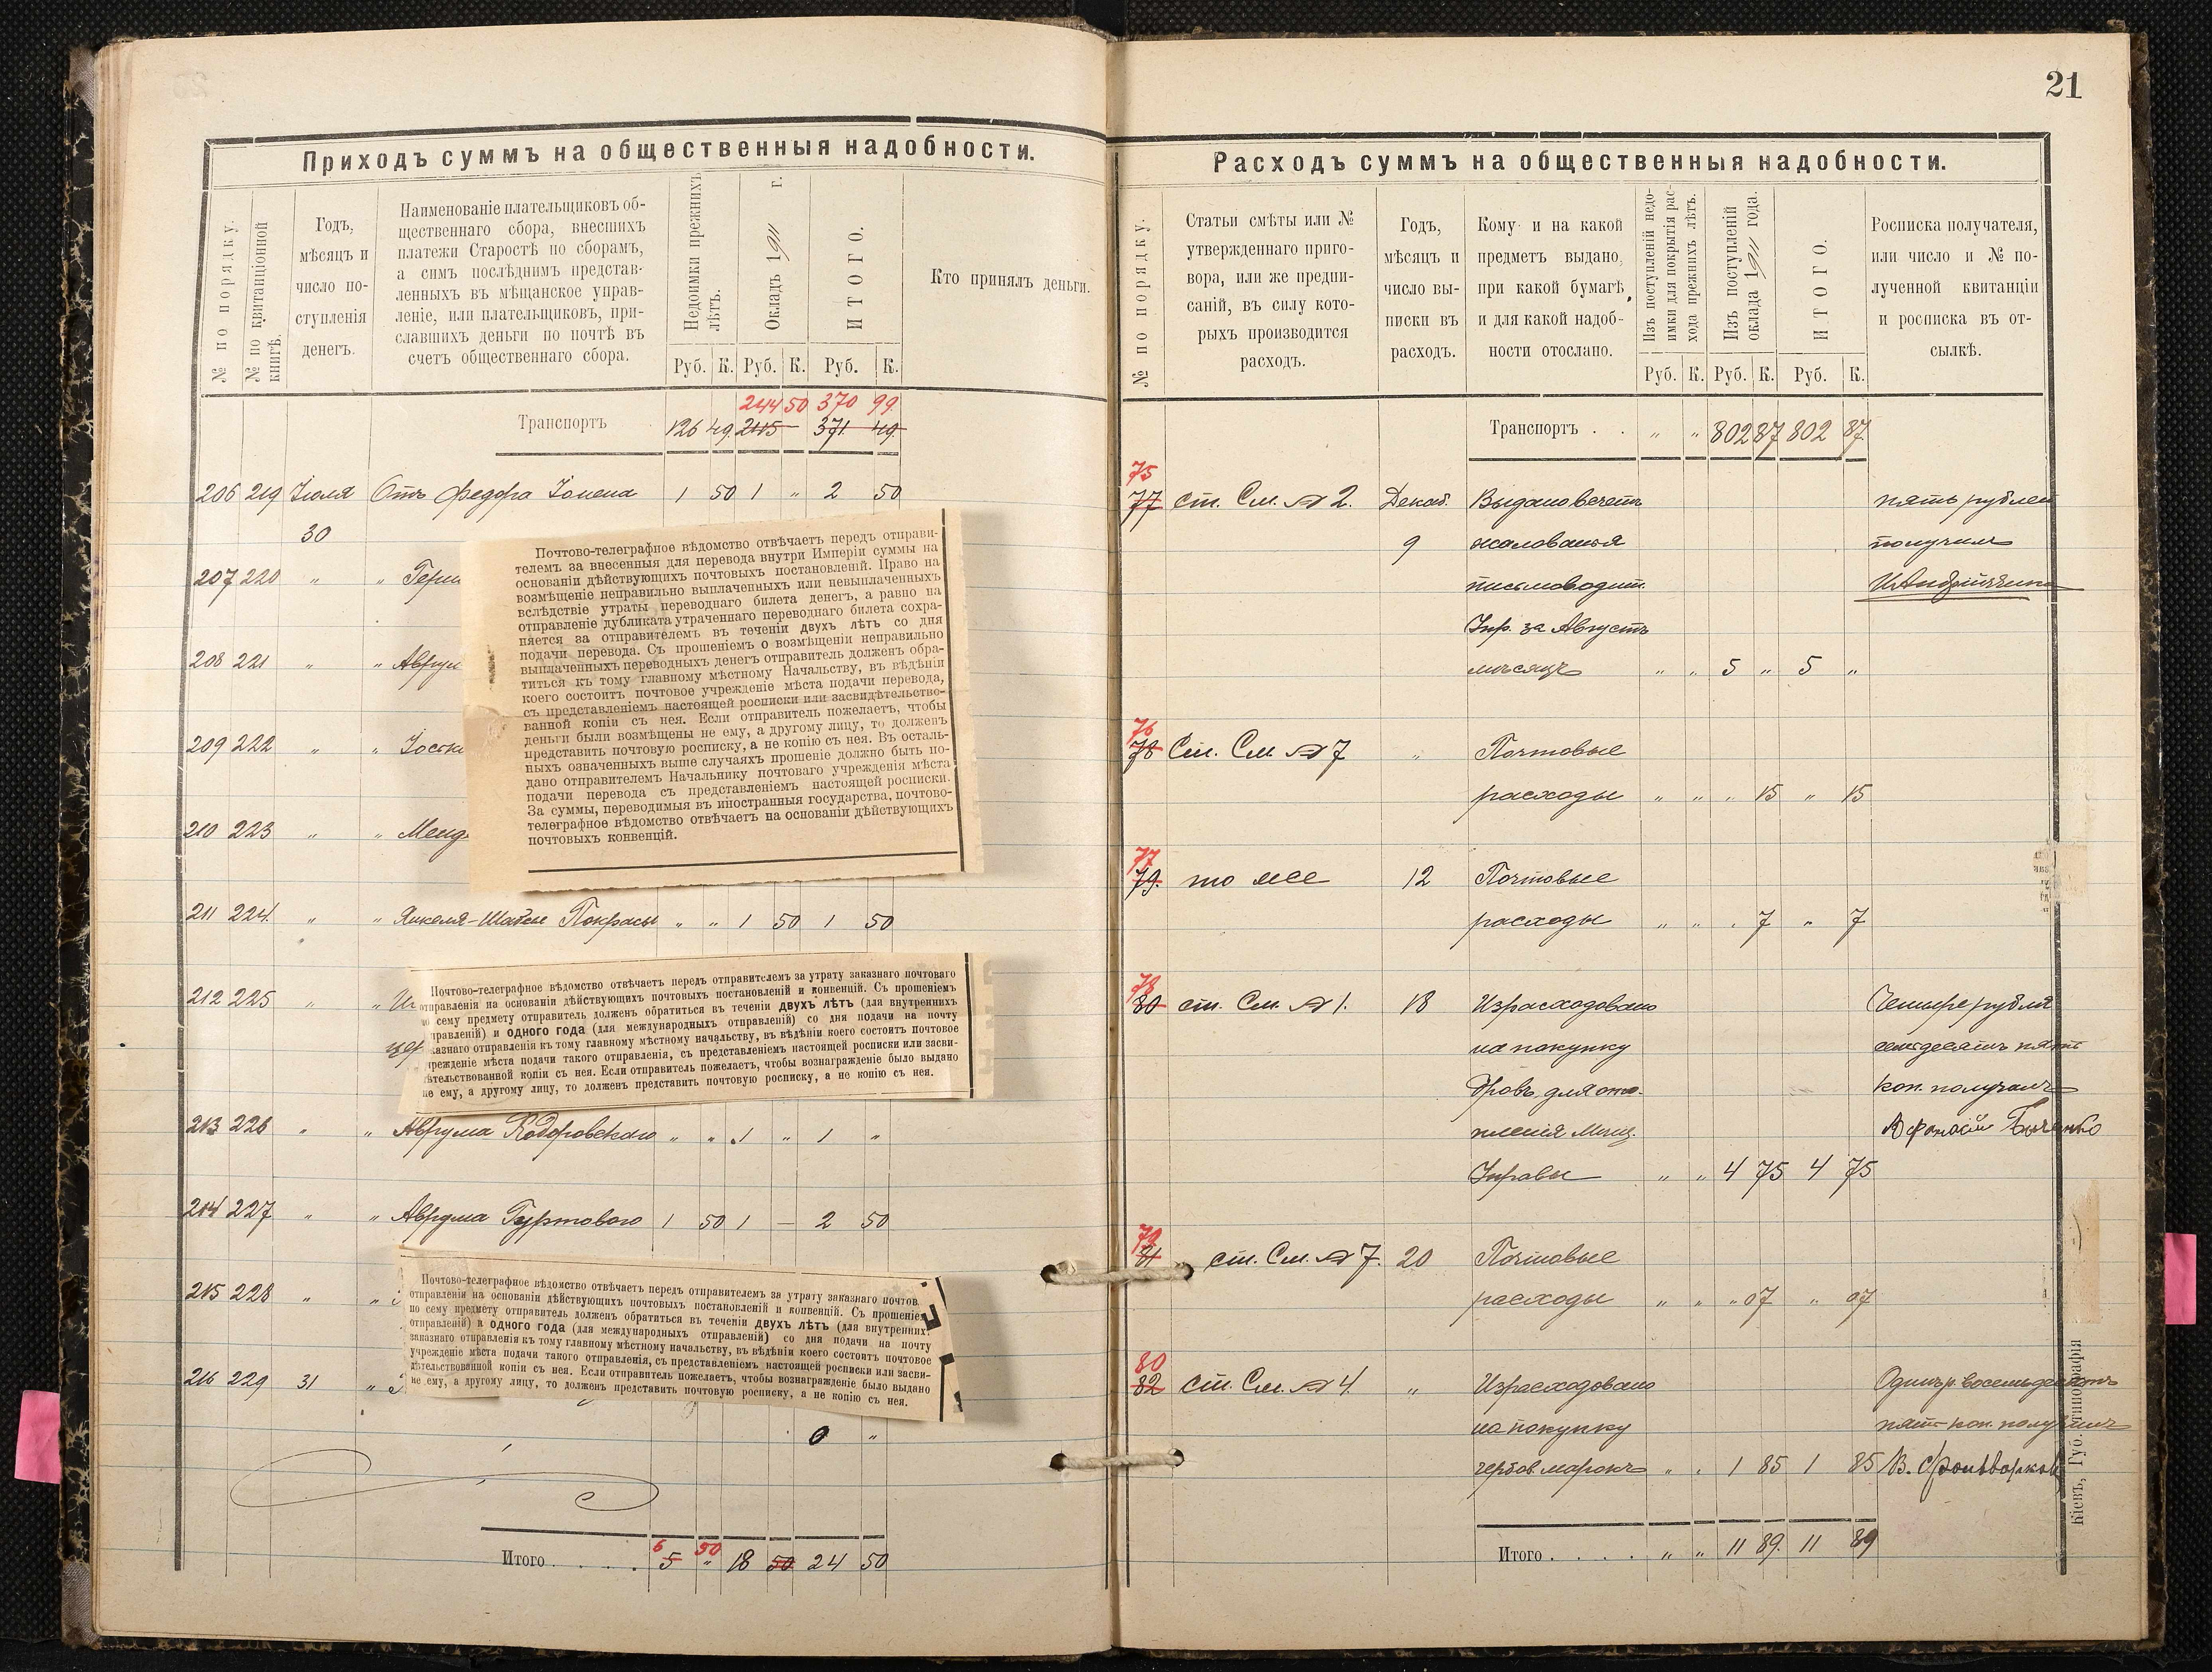 21
Приходъ суммъ на общественныя надобности.
№ по порядку.
№ по квитанціонной книгѣ.
Годъ,
мѣсяцъ и
число по-
ступленія
денегъ.
Наименованіе плательщиковъ об-
щественнаго сбора, внесшихъ
платежи Старостѣ по сборамъ,
а симъ послѣднимъ представ-
ленныхъ въ мѣщанское управ-
леніе, или плательщиковъ, при-
славшихъ деньги по почтѣ въ
счетъ общественнаго сбора.
Недоимки прежнихъ
лѣтъ.
Окладъ 1911 г.
ИТОГО.
Кто принялъ деньги.
Руб. К. Руб. К. Руб. К.
244 50 370 99
Транспортъ 126 49 245 — 371 49
206 219 Іюля Отъ Федора 1 50 1 " 2 50
30
207 220 " "
208 221 " " Аврум
209 222 " "
210 223 " " Менд
Почтово-телеграфное вѣдомство отвѣчаетъ передъ отправи-
телемъ за внесенныя для перевода внутри Имперіи суммы на
основаніи дѣйствующихъ почтовыхъ постановленій. Право на
возмѣщеніе неправильно выплаченныхъ или невыплаченныхъ
вслѣдствіе утраты переводнаго билета денегъ, а равно на
отправленіе дубликата утраченнаго переводнаго билета сохра-
няется за отправителемъ въ теченіи двухъ лѣтъ со дня
подачи перевода. Съ прошеніемъ о возмѣщеніи неправильно
выплаченныхъ переводныхъ денегъ отправитель долженъ обра-
титься къ тому главному мѣстному Начальству, въ вѣдѣніи
коего состоитъ почтовое учрежденіе мѣста подачи перевода,
съ представленіемъ настоящей росписки или засвидѣтельство-
ванной копіи съ нея. Если отправитель пожелаетъ, чтобы
деньги были возмѣщены не ему, а другому лицу, то долженъ
представить почтовую росписку, а не копію съ нея. Въ осталь-
ныхъ означенныхъ выше случаяхъ прошеніе должно быть по-
дано отправителемъ Начальнику почтоваго учрежденія мѣста
подачи перевода съ представленіемъ настоящей росписки.
За суммы, переводимыя въ иностранныя государства, почтово-
телеграфное вѣдомство отвѣчаетъ на основаніи дѣйствующихъ
почтовыхъ конвенцій.
211 224 " " Янкеля- Покрасы " " 1 50 1 50
212 225 " "
Почтово-телеграфное вѣдомство отвѣчаетъ передъ отправителемъ за утрату заказнаго почтоваго
отправленія на основаніи дѣйствующихъ почтовыхъ постановленій и конвенцій. Съ прошеніемъ
по сему предмету отправитель долженъ обратиться въ теченіи двухъ лѣтъ (для внутреннихъ
правленій) и одного года (для международныхъ отправленій) со дня подачи на почту
казнаго отправленія къ тому главному мѣстному начальству, въ вѣдѣніи коего состоитъ почтовое
чрежденіе мѣста подачи такого отправленія, съ представленіемъ настоящей росписки или засви-
ѣтельствованной копіи съ нея. Если отправитель пожелаетъ, чтобы вознагражденіе было выдано
не ему, а другому лицу, то долженъ представить почтовую росписку, а не копію съ нея.
213 226 " " Аврума " " 1 " 1 "
214 227 " " Аврума Гуртового 1 50 1 — 2 50
215 228 " "
Почтово-телеграфное вѣдомство отвѣчаетъ передъ отправителемъ за утрату заказнаго почтов
отправленія на основаніи дѣйствующихъ почтовыхъ постановленій и конвенцій. Съ прошеніем
по сему предмету отправитель долженъ обратиться въ теченіи двухъ лѣтъ (для внутренних
отправленій) и одного года (для международныхъ отправленій) со дня подачи на почту
заказнаго отправленія къ тому главному мѣстному начальству, въ вѣдѣніи коего состоитъ почтовое
учрежденіе мѣста подачи такого отправленія, съ представленіемъ настоящей росписки или засви-
дѣтельствованной копіи съ нея. Если отправитель пожелаетъ, чтобы вознагражденіе было выдано
не ему, а другому лицу, то долженъ представить почтовую росписку, а не копію съ нея.
216 229 31 "
0 "
6 50
Итого . . . . . 5 " 18 50 24 50
Расходъ суммъ на общественныя надобности.
№ по порядку.
Статьи смѣты или №
утвержденнаго приго-
вора, или же предпи-
саній, въ силу кото-
рыхъ производится
расходъ.
Годъ,
мѣсяцъ и
число вы-
писки въ
расходъ.
Кому и на какой
предметъ выдано,
при какой бумагѣ
и для какой надоб-
ности отослано.
Изъ поступленій недо-
имки для покрытія рас-
хода прежнихъ лѣтъ.
Изъ поступленій
оклада 1911 года.
ИТОГО.
Росписка получателя,
или число и № по-
лученной квитанціи
и росписка въ от-
сылкѣ.
Руб. К. Руб. К. Руб. К.
Транспортъ . . " " 802 87 802 87
75
77 ст. См. № 2. Декаб. Выдано въ счетъ пять рублей
9 жалованья получилъ
письмоводит.
Упр. за Августъ
мѣсяцъ " " 5 " 5 "
76
78 Ст. См. № 7 " Почтовые
расходы " " " 15 " 15
77
79. то же 12 Почтовые
расходы " " " 7 " 7
78
80 ст. См. № 1. 18 Израсходовано Четыре рубля
на покупку семьдесятъ пять
дровъ для ото- коп. получилъ
пленія Мѣщ. Афонасій Быченко
Управы " " 4 75 4 75
79
81 ст. См. № 7. 20 Почтовые
расходы " " " 07 " 07
80
82 ст. См. № 4. " Израсходовано Одинъ р. восемьдесятъ
на покупку пять коп. получилъ
гербов. марокъ " " 1 85 1 85 В.
Итого . . . . " " 11 89. 11 89
Кіевъ, Губ. типографія